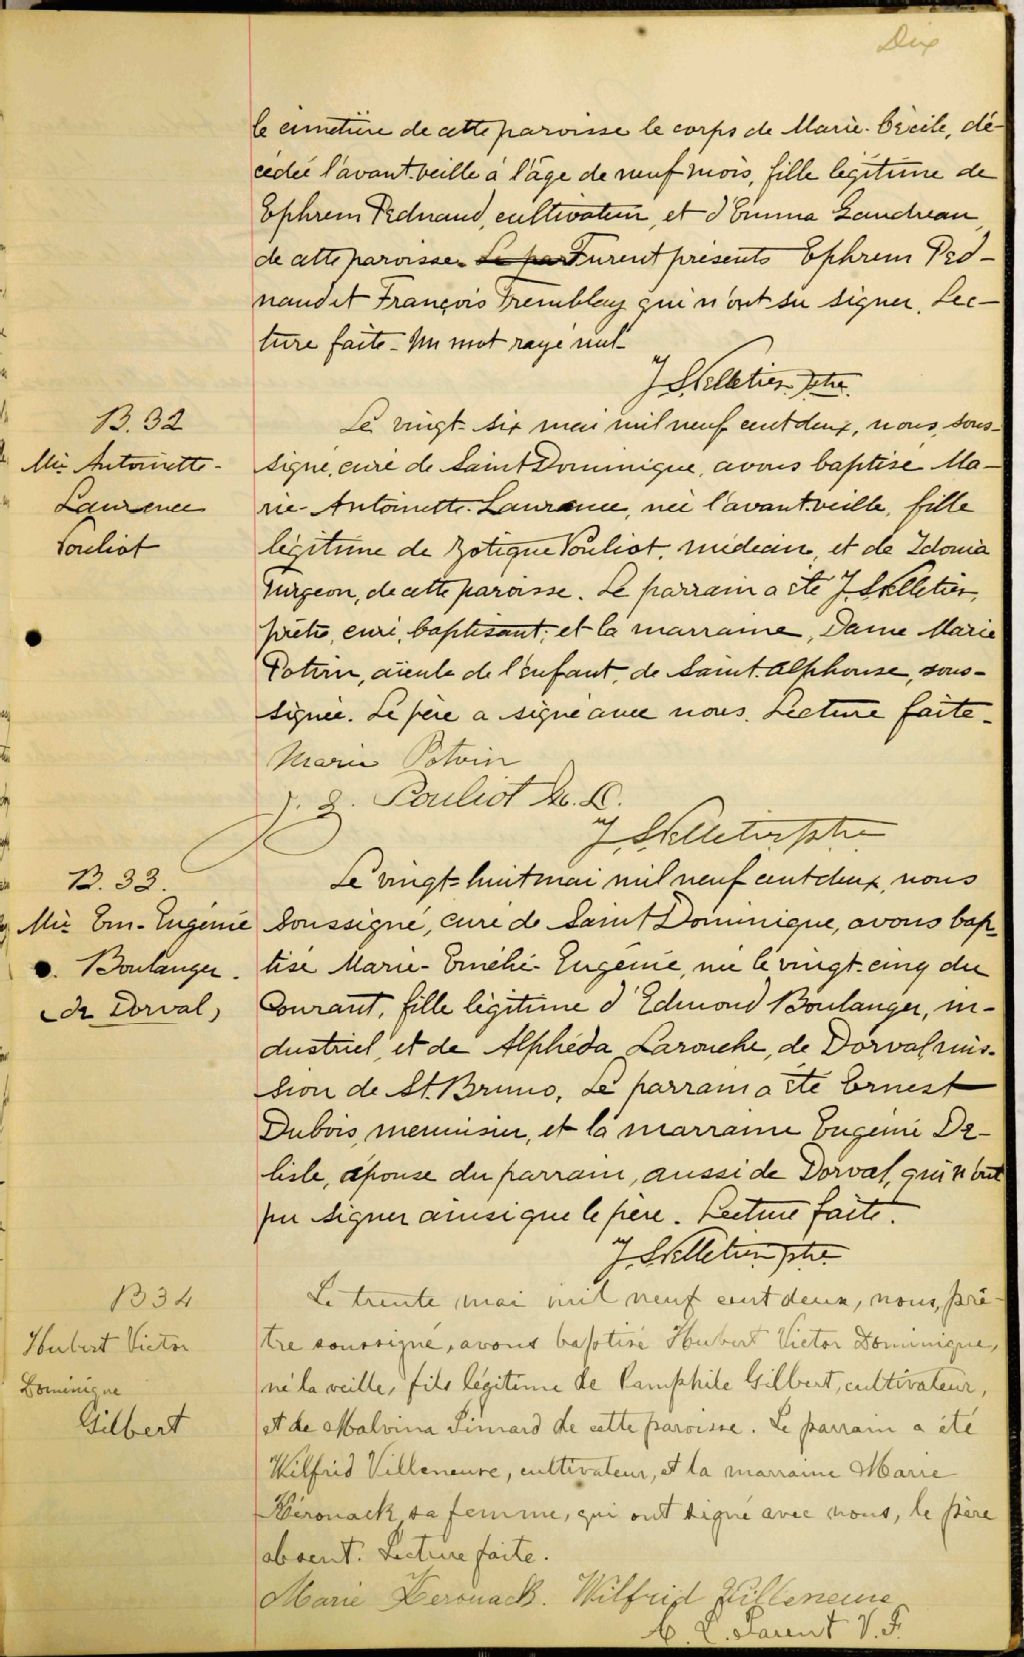 Dix
le cimetière de cette paroisse le corps de Marie-Cécile, dé-
cédée l'avant-veille à l'âge de neuf mois, fille légitime de
Ephrem Pednaud, cultivateur, et d'Emma Gaudreau,
de cette paroisse. Le par Furent présents Ephrem Ped-
naud et François Tremblay qui n'ont su signer. Lec-
ture faite - Un mot rayé nul -
J. S. Pelletier ptre.
B. 32
Mie Antoinette-
Laurence
Pouliot
Le vingt-six mai mil neuf cent deux, nous, sous-
signé, curé de Saint Dominique, avons baptisé Ma-
rie-Antoinette-Laurence, née l'avant-veille, fille
légitime de Zotique Pouliot, médecin, et de Idonia
Turgeon, de cette paroisse. Le parrain a été J. S. Pelletier,
prêtre, curé, baptisant; et la marraine, Dame Marie
Potvin, aïeule de l'enfant, de Saint-Alphonse, sous-
signée. Le père a signé avec nous. Lecture faite -
Marie Potvin
J. Z. Pouliot M. D.
J. S. Pelletier ptre
B. 33.
Mie Em-Eugénie
Boulanger.
(de Dorval)
Le vingt-huit mai mil neuf cent deux, nous
soussigné, curé de Saint Dominique, avons bap-
tisé Marie-Emélié-Eugénie, née le vingt-cinq du
courant, fille légitime d'Edmond Boulanger, in-
dustriel, et de Alphéda Larouche, de Dorval mis-
sion de St. Bruno. Le parrain a été Ernest
Dubois, menuisier, et la marraine Eugénie De-
lisle, épouse du parrain, aussi de Dorval, qui n'ont
pu signer ainsi que le père. Lecture faite.
J. S. Pelletier ptre
B 34
Hubert Victor
Dominique
Gilbert
Le trente mai mil neuf cent deux, nous, prê-
tre soussigné, avons baptisé Hubert Victor Dominique,
né la veille, fils légitime de Pamphile Gilbert, cultivateur,
et de Malvina Simard de cette paroisse. Le parrain a été
Wilfrid Villeneuve, cultivateur, et la marraine Marie
Kérouack, sa femme, qui ont signé avec nous, le père
absent. Lecture faite.
Marie Kerouack. Wilfrid Villeneuve
A. L. Parent V. F.